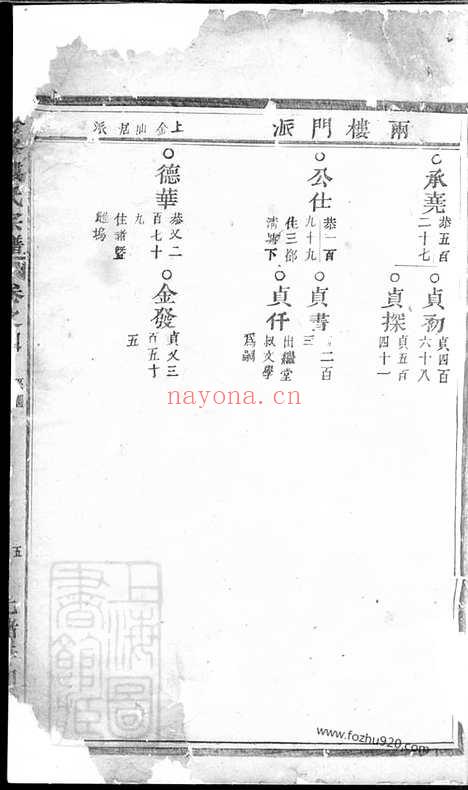 兩樓門派
承堯
恭五百
二十七
貞初
貞四百
六十八
貞探
貞五百
四十一
公仕
恭一百
九十九
住三都
清塘下
貞書
二百
三
貞仟
出繼堂
叔文學
爲嗣
上金
居派
德華
恭又二
百七十
九
住諸暨
金發
貞又三
百五十
五
氏宗譜
卷之
五
上海圖書館藏
nayona.cn
www.fozhu920.com